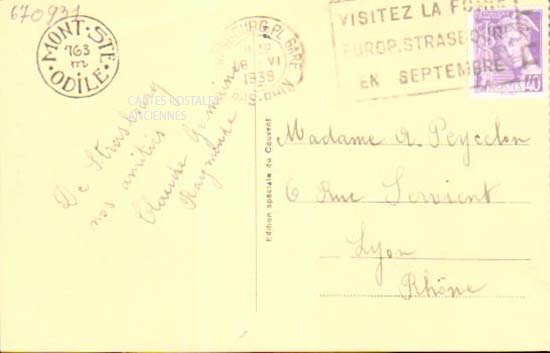 670931
MONT-STE-ODILE
763
m
STRASBOURG PL. GARE
VI
1939
VISITEZ LA FOIRE
EUROP. STRASBOURG
EN SEPTEMBRE
POSTES
40
CARTES POSTALES
ANCIENNES
De Strasbourg
nos amitiés
Claude Germaine
Raymonde
Edition spéciale du Couvent
Madame A. Peycelon
6 Rue Servient
Lyon
Rhône